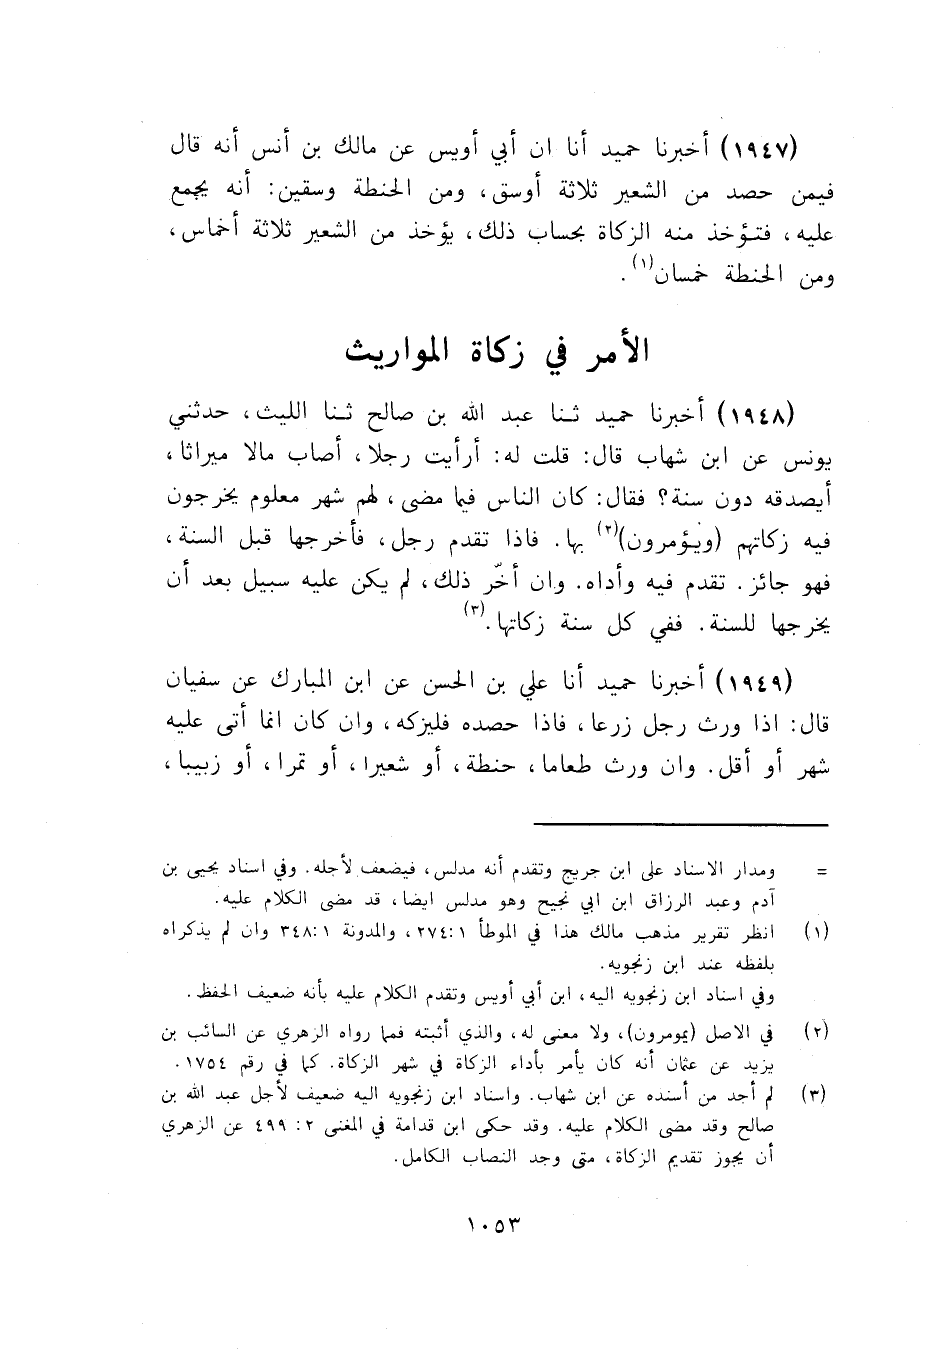 (١٩٤٧) أخبرنا حميد أنا ان أبي أويس عن مالك بن أنس أنه قال
فيمن حصد من الشعير ثلاثة أوسق، ومن الحنطة وسقين: أنه يجمع
عليه، فتـؤخذ منه الزكاة بحساب ذلك، يؤخذ من الشعير ثلاثة أخماس،
ومن الحنطة خمسان(١).
الأمر في زكاة المواريث
(١٩٤٨) أخبرنا حميد ثـنا عبد الله بن صالح ثـنا الليث، حدثني
يونس عن ابن شهاب قال: قلت له: أرأيت رجلا، أصاب مالا ميراثا،
أيصدقه دون سنة؟ فقال: كان الناس فيما مضى، لهم شهر معلوم يخرجون
فيه زكاتهم (ويـؤمرون)(٢) بها. فاذا تقدم رجل، فأخرجها قبل السنة،
فهو جائز. تقدم فيه وأداه. وان أخّر ذلك، لم يكن عليه سبيل بعد أن
يخرجها للسنة. ففي كل سنة زكاتها.(٣)
(١٩٤٩) أخبرنا حميد أنا علي بن الحسن عن ابن المبارك عن سفيان
قال: اذا ورث رجل زرعا، فاذا حصده فليزكه، وان كان انما أتى عليه
شهر أو أقل. وان ورث طعاما، حنطة، أو شعيرا، أو تمرا، أو زبيبا،
= ومدار الاسناد على ابن جريج وتقدم أنه مدلس، فيضعف لأجله. وفي اسناد يحيى بن
آدم وعبد الرزاق ابن ابي نجيح وهو مدلس ايضا، قد مضى الكلام عليه.
(١) انظر تقرير مذهب مالك هذا في الموطأ ١: ٢٧٤، والمدونة ١: ٣٤٨ وان لم يذكراه
بلفظه عند ابن زنجويه.
وفي اسناد ابن زنجويه اليه، ابن أبي أويس وتقدم الكلام عليه بأنه ضعيف الحفظ.
(٢) في الاصل (يمومرون)، ولا معنى له، والذي أثبته فمما رواه الزهري عن السائب بن
يزيد عن عثمان أنه كان يأمر بأداء الزكاة في شهر الزكاة. كما في رقم ١٧٥٤.
(٣) لم أجد من أسنده عن ابن شهاب. واسناد ابن زنجويه اليه ضعيف لأجل عبد الله بن
صالح وقد مضى الكلام عليه. وقد حكى ابن قدامة في المغنى ٢: ٤٩٩ عن الزهري
أن يجوز تقديم الزكاة، متى وجد النصاب الكامل.
١٠٥٣